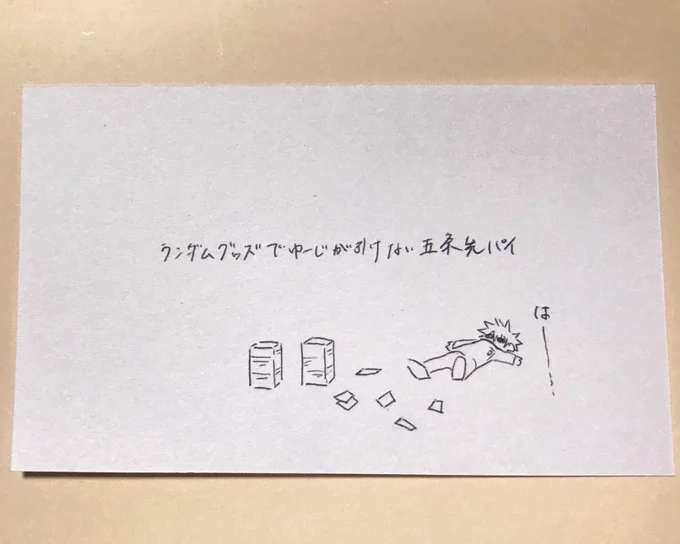 ランダムグッズでゆーじが引けない五条先パイ
は
｜